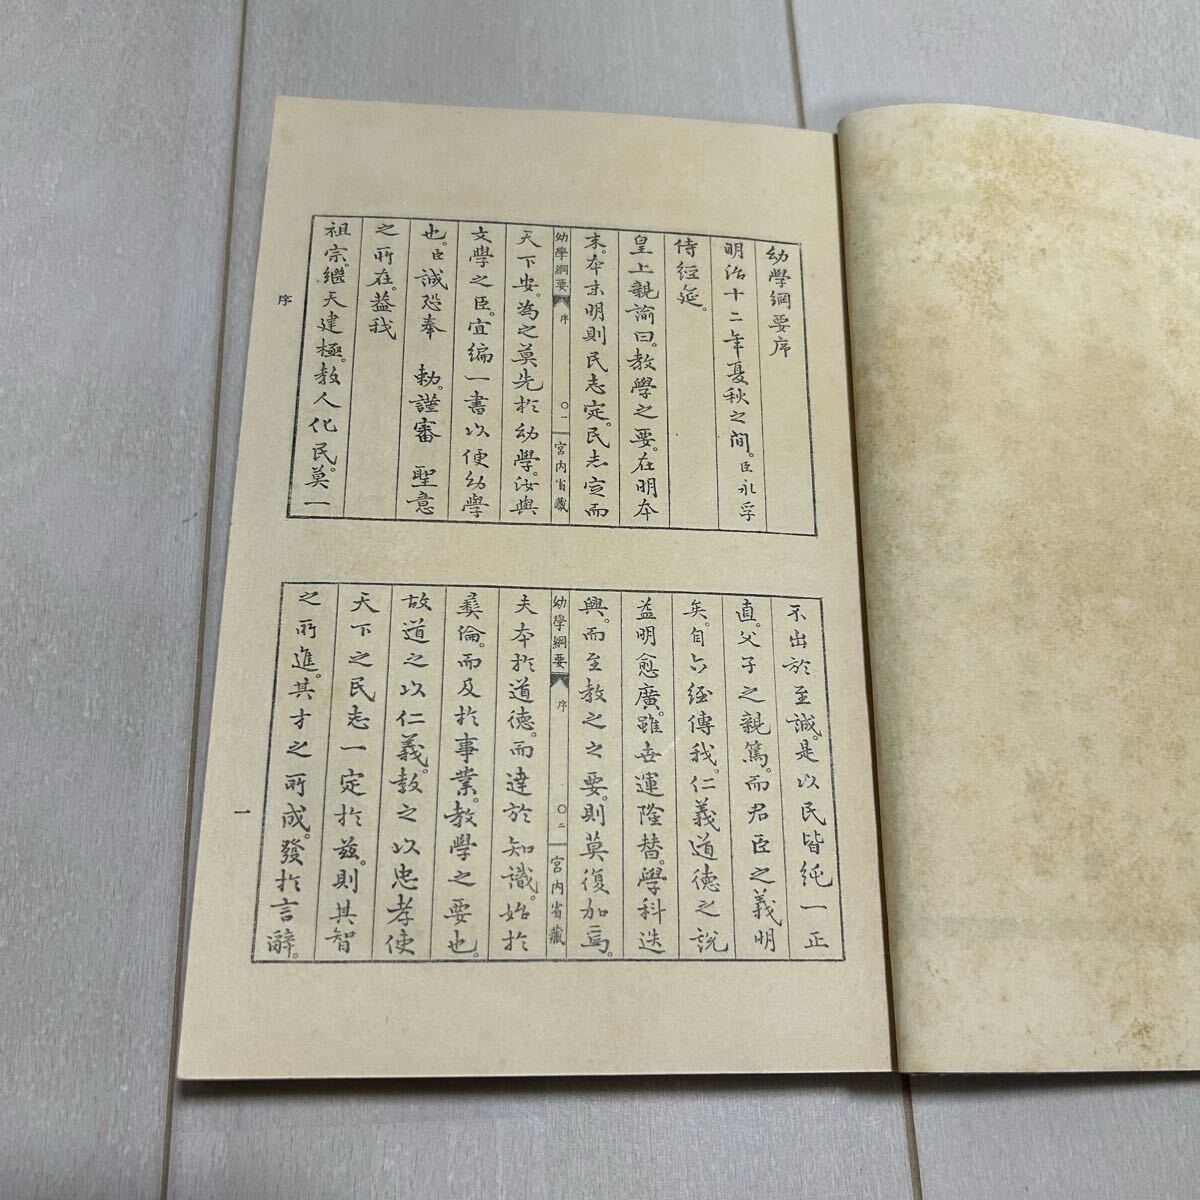 幼學綱要序
明治十二年夏秋之間。臣永孚
侍經筵。
皇上親諭曰。教學之要。在明本
末。本末明則民志定。民志定而
幼學綱要 序 〇一 宮內省藏
天下安。為之莫先於幼學。汝與
文學之臣。宜編一書以便幼學
也。臣誠恐奉 勅。謹審 聖意
之所在。蓋我
祖宗。繼天建極。教人化民。莫一
不出於至誠。是以民皆純一正
直。父子之親篤。而君臣之義明
矣。自六經傳我。仁義道德之說
益明愈廣。雖世運隆替。學科迭
興。而至教之之要。則莫復加焉。
幼學綱要 序 〇二 宮內省藏
夫本於道德。而達於知識。始於
彝倫。而及於事業。教學之要也。
故道之以仁義。教之以忠孝。使
天下之民志一定於茲。則其智
之所進。其才之所成。發於言辭。
序
一